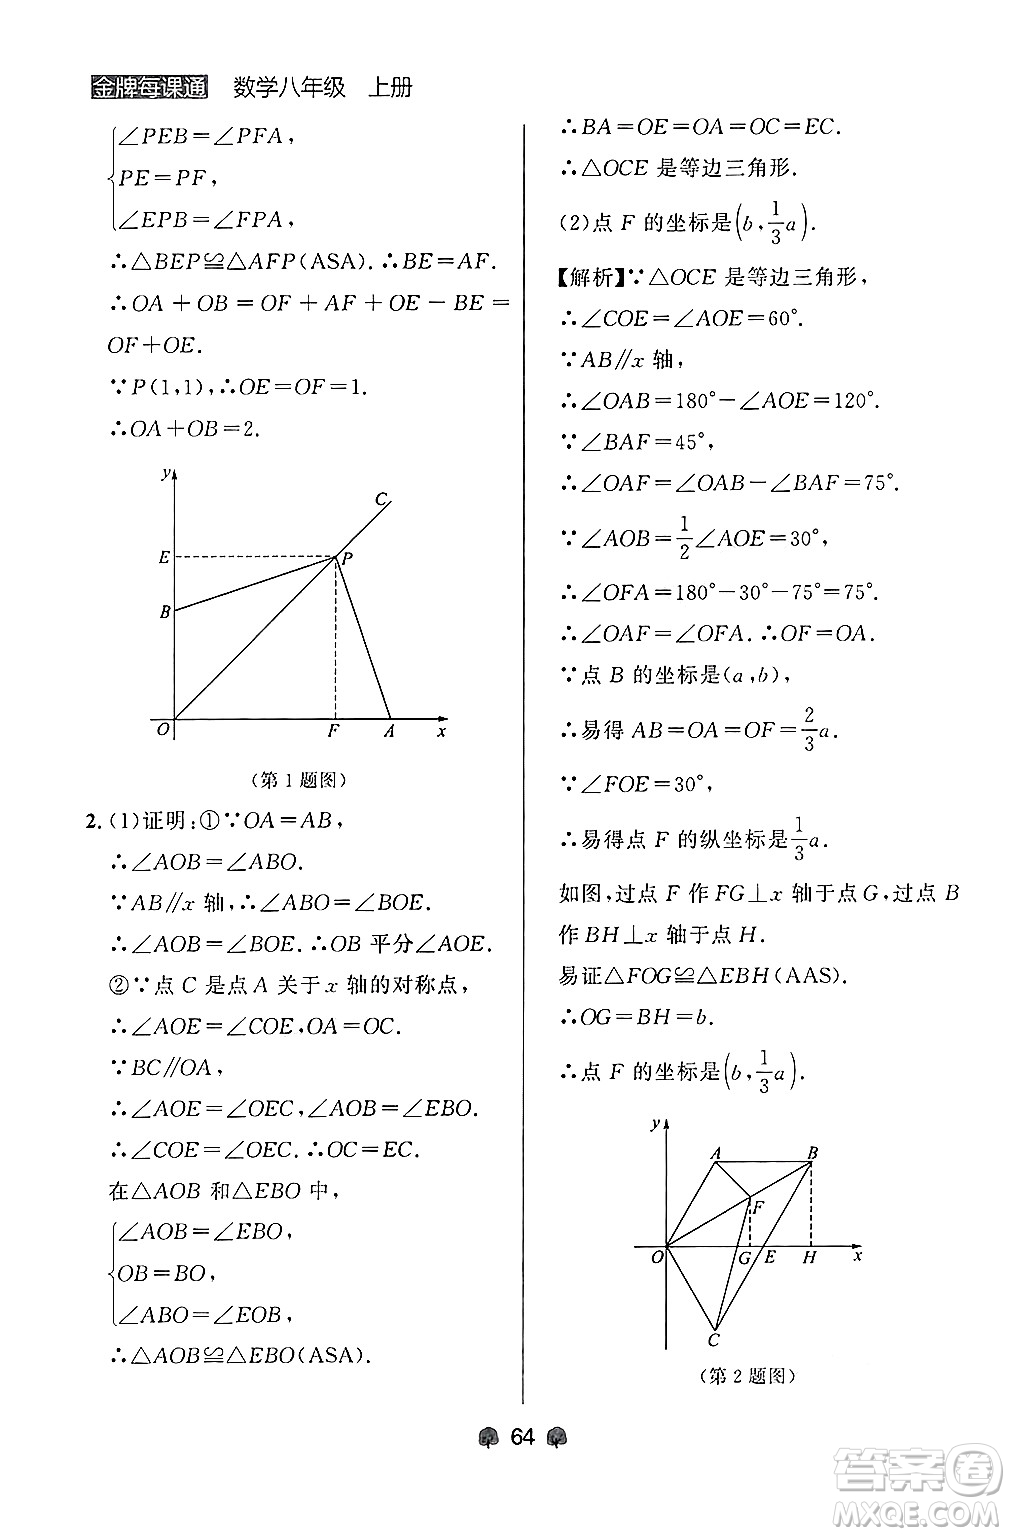 金牌每课通 数学八年级 上册
∠PEB=∠PFA,
PE=PF,
∠EPB=∠FPA,
∴△BEP≌△AFP(ASA).∴BE=AF.
∴OA+OB=OF+AF+OE-BE=
OF+OE.
∵P(1,1),∴OE=OF=1.
∴OA+OB=2.
y
C
E
P
B
O
F
A
x
(第1题图)
2.(1)证明:①∵OA=AB,
∴∠AOB=∠ABO.
∵AB∥x 轴,∴∠ABO=∠BOE.
∴∠AOB=∠BOE.∴OB 平分∠AOE.
②∵点 C 是点 A 关于 x 轴的对称点,
∴∠AOE=∠COE,OA=OC.
∵BC∥OA,
∴∠AOE=∠OEC,∠AOB=∠EBO.
∴∠COE=∠OEC.∴OC=EC.
在△AOB 和△EBO 中,
∠AOB=∠EBO,
OB=BO,
∠ABO=∠EOB,
∴△AOB≌△EBO(ASA).
∴BA=OE=OA=OC=EC.
∴△OCE 是等边三角形.
(2)点 F 的坐标是(b,1/3 a).
【解析】∵△OCE 是等边三角形,
∴∠COE=∠AOE=60°.
∵AB∥x 轴,
∴∠OAB=180°-∠AOE=120°.
∵∠BAF=45°,
∴∠OAF=∠OAB-∠BAF=75°.
∵∠AOB=1/2∠AOE=30°,
∴∠OFA=180°-30°-75°=75°.
∴∠OAF=∠OFA.∴OF=OA.
∵点 B 的坐标是(a,b),
∴易得 AB=OA=OF=2/3 a.
∵∠FOE=30°,
∴易得点 F 的纵坐标是1/3 a.
如图,过点 F 作 FG⊥x 轴于点 G,过点 B
作 BH⊥x 轴于点 H.
易证△FOG≌△EBH(AAS).
∴OG=BH=b.
∴点 F 的坐标是(b,1/3 a).
y
A
B
F
O
G
E
H
x
C
(第2题图)
64
答案卷
MXQE.COM